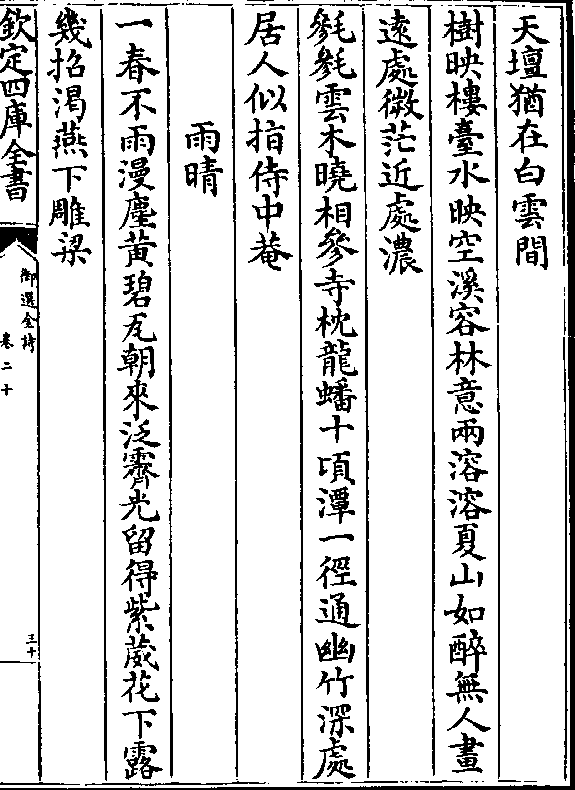 天壇猶在白雲間
樹映樓臺水映空溪容林意兩溶溶夏山如醉無人畫
遠處微茫近處濃
毿毿雲木曉相參寺枕龍蟠十頃潭一徑通幽竹深處
居人似指侍中菴
雨晴
一春不雨漫塵黃碧瓦朝來泛霽光留得紫葳花下露
幾招渴燕下雕梁
欽定四庫全書
御選金詩
卷二十
三十